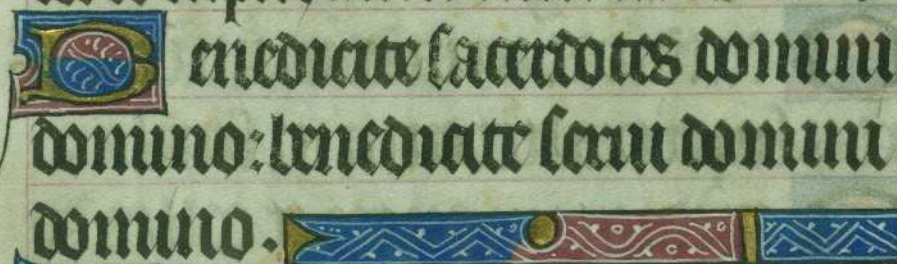 Benedicite sacerdotes domini
domino: benedicite serui domini
domino.